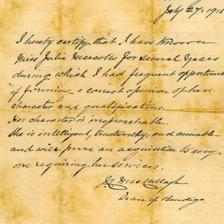 July 27. 1915
I hereby certify that I have known
Miss Julia for several Years
during which I had frequent opportunities
of forming a correct opinion of her
character and qualifications.
Her character is irreproachable
She is intelligent, trustworthy, and amiable
and will prove an acquisition to any
one requiring her services.
Dean of Bendigo.